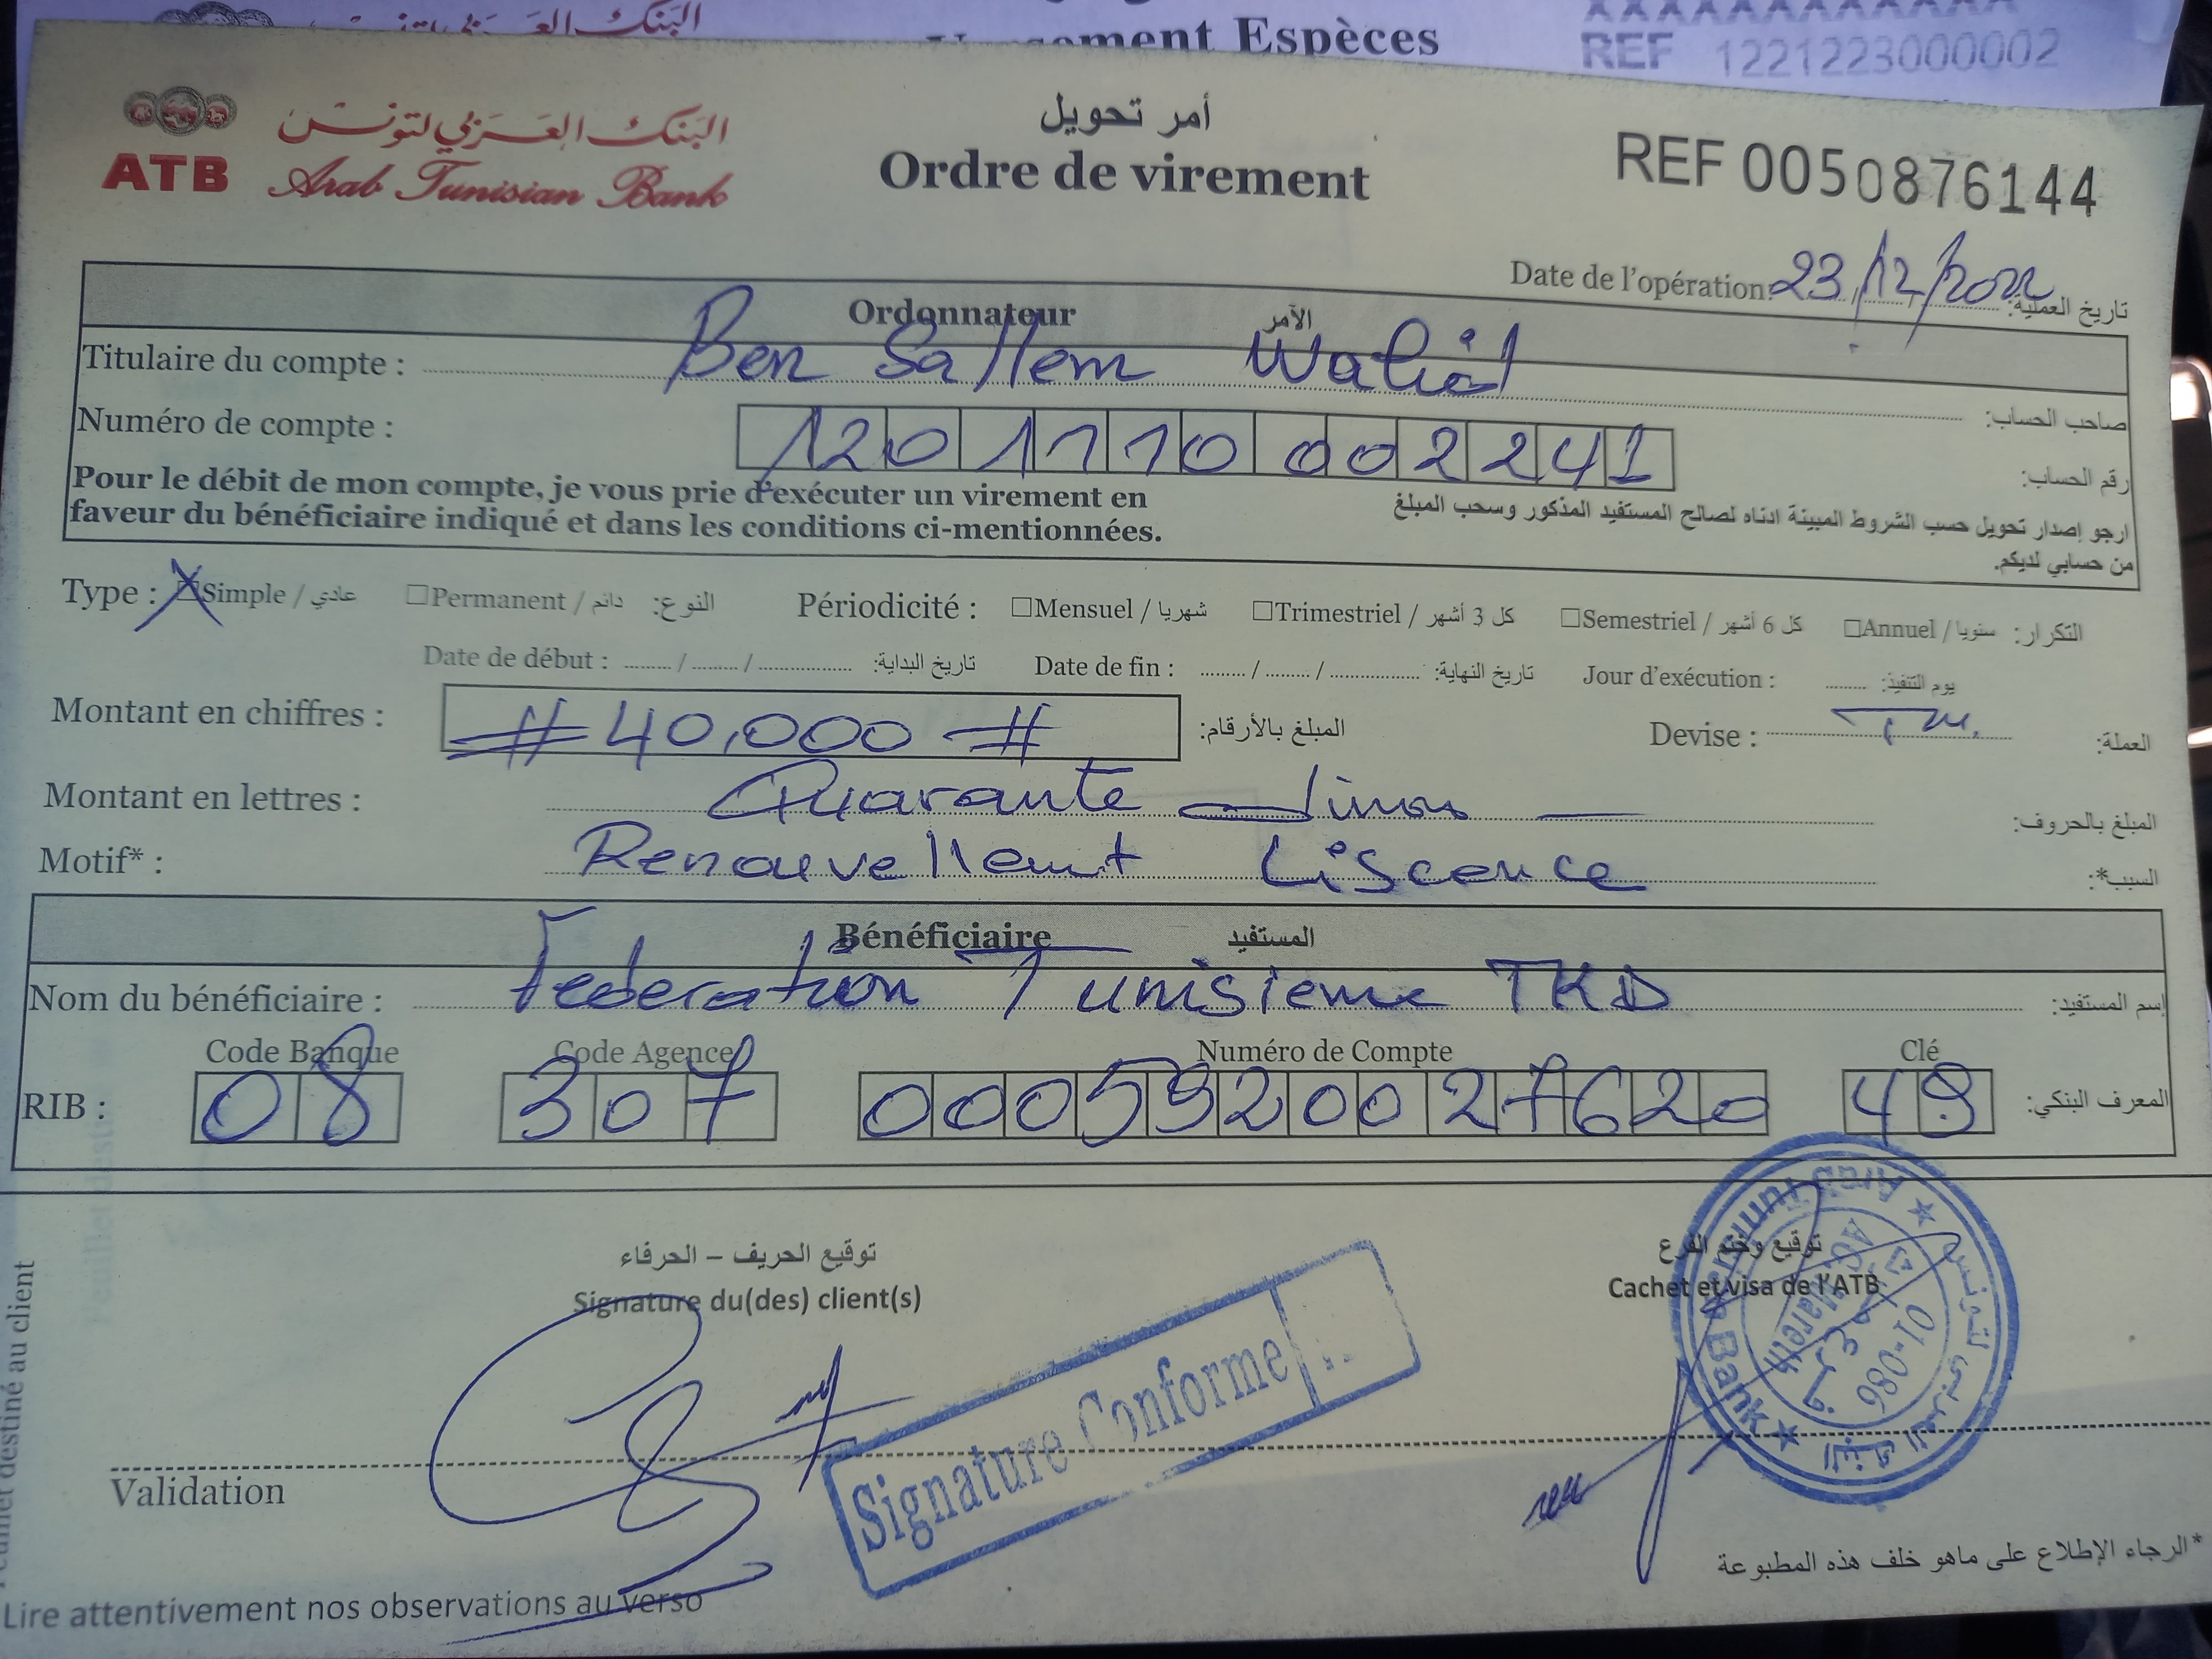 البنك العربي لتونس
Versement Espèces
XXXXXXXXXXXX
REF 1221223000002
ATB
البنك العربي لتونس
Arab Tunisian Bank
أمر تحويل
Ordre de virement
REF 0050876144
Date de l'opération: 23/12/2022 تاريخ العملية:
Ordonnateur الآمر
Titulaire du compte : Ben Sallem Walid صاحب الحساب:
Numéro de compte : 1201110002241 رقم الحساب:
Pour le débit de mon compte, je vous prie d'exécuter un virement en
faveur du bénéficiaire indiqué et dans les conditions ci-mentionnées.
ارجو إصدار تحويل حسب الشروط المبينة ادناه لصالح المستفيد المذكور وسحب المبلغ
من حسابي لديكم.
Type : X Simple / عادي □Permanent / دائم النوع: Périodicité : □Mensuel / شهريا □Trimestriel / كل 3 أشهر □Semestriel / كل 6 أشهر □Annuel / سنويا التكرار:
Date de début : ......... / ......... / .............. تاريخ البداية: Date de fin : ......... / ......... / .............. تاريخ النهاية: Jour d'exécution : ........ يوم التنفيذ:
Montant en chiffres : # 40,000 # المبلغ بالأرقام: Devise : العملة:
Montant en lettres : Quarante dinars المبلغ بالحروف:
Motif* : Renouvellemt Liscence السبب*:
Bénéficiaire المستفيد
Nom du bénéficiaire : Federation Tunisienne TKD إسم المستفيد:
Code Banque Code Agence Numéro de Compte Clé
RIB : 08 307 0005920027620 49 المعرف البنكي:
توقيع الحريف – الحرفاء
Signature du(des) client(s)
توقيع وختم الفرع
Cachet et visa de l'ATB
Signature Conforme
Arab Tunisian Bank
البنك العربي لتونس
01-086
Validation
Feuillet destiné au client
*الرجاء الإطلاع على ماهو خلف هذه المطبوعة
Lire attentivement nos observations au verso